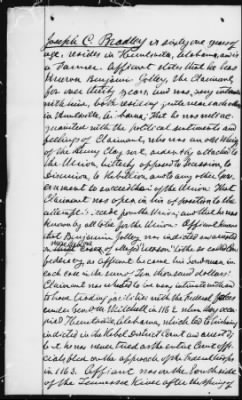 Joseph C. Bradley is sixty one years of
age, resides in Huntsville, Alabama, and is
a Farmer. Affiant states that he has
known Benjamin Jolley, the Claimant,
for over thirty years and was very intimate
with him, both residing near each other
in Huntsville, Alabama; that he was well ac-
quainted with the political sentiments and
feelings of Claimant, who was an old Whig
of the Henry Clay sort, ardently attached to
the Union, bitterly opposed to Secession, to
Disunion, to Rebellion and to any other Gov-
ernment to succeed than of the Union. That
Claimant was open in his opposition to the
attempt to the Union; and that he was
known by all to be for the Union. Affiant knows
that Benjamin Jolley was indicted
in Cases of to the so called Con-
federacy as affiant became his bondsman in
each case in the sum of Ten thousand dollars.
Claimant was
to have trading facilities with the Federal
under Genl O M Mitchell in 1862 when they occu-
pied Huntsville, Alabama, which led to his being
indicted in the Rebel District Court and arrested
but he was never tried as the entire Court offi-
cials fled on the approach of the Federal troops
in 1863. Affiant was on the South side
of the Tennessee River after the Spring of